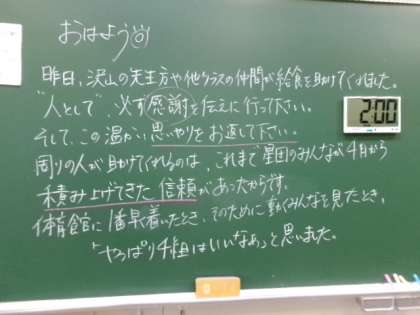 おはよう
昨日、沢山の先生方や他クラスの仲間が給食を助けてくれました。
"人として"、必ず感謝を伝えに行って下さい。
そして、この温かい思いやりをお返して下さい。
周りの人が助けてくれるのは、これまで星団のみんなが4月から
積み上げてきた信頼があったからです。
体育館に1番早着いたとき、そのために動くみんなを見たとき、
「やっぱり4組はいいなぁっと思いました。
2:00